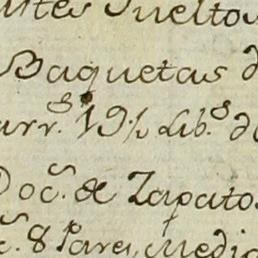 Sueltos
Baquetas d
arr.s 19½ Lib.s d
Doc.s de Zapatos
c.s 8 Pares, Medi